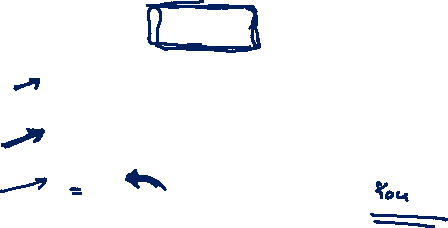 =
You